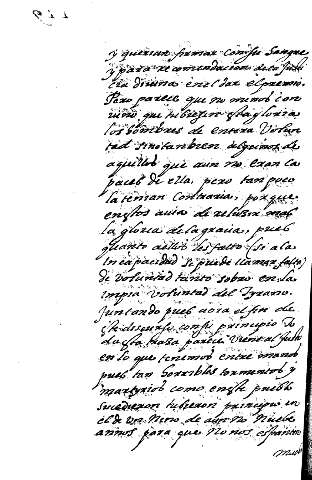 y querian firmar con su sangre
y para recomendacion de la Justi
cia divina en el dar el premio.
Pero parece que no menos con
vino que tubiesen esta gloria
los hombres de entera Volun
tad sino tanbien algunos de
aquellos que aun no eran ca
paces de ella, pero tampoco
la tenian contraria, porque
en estos avia de relusir mas
la gloria de la gracia, pues
quanto a ellos les falto (si a la
incapacidad se puede llamar falta)
de voluntad tanto sobro en la
impia voluntad del Tyrano.
Juntando pues aora el fin de
este discurso con su principio To
da esta traza parece viene al Justo
en lo que tenemos entre manos
pues tan horribles tormentos y
martyrios como en este pueblo
sucedieron tubieron principio en
el de un Nino de aun No Nuebe
annos para que No nos espanten